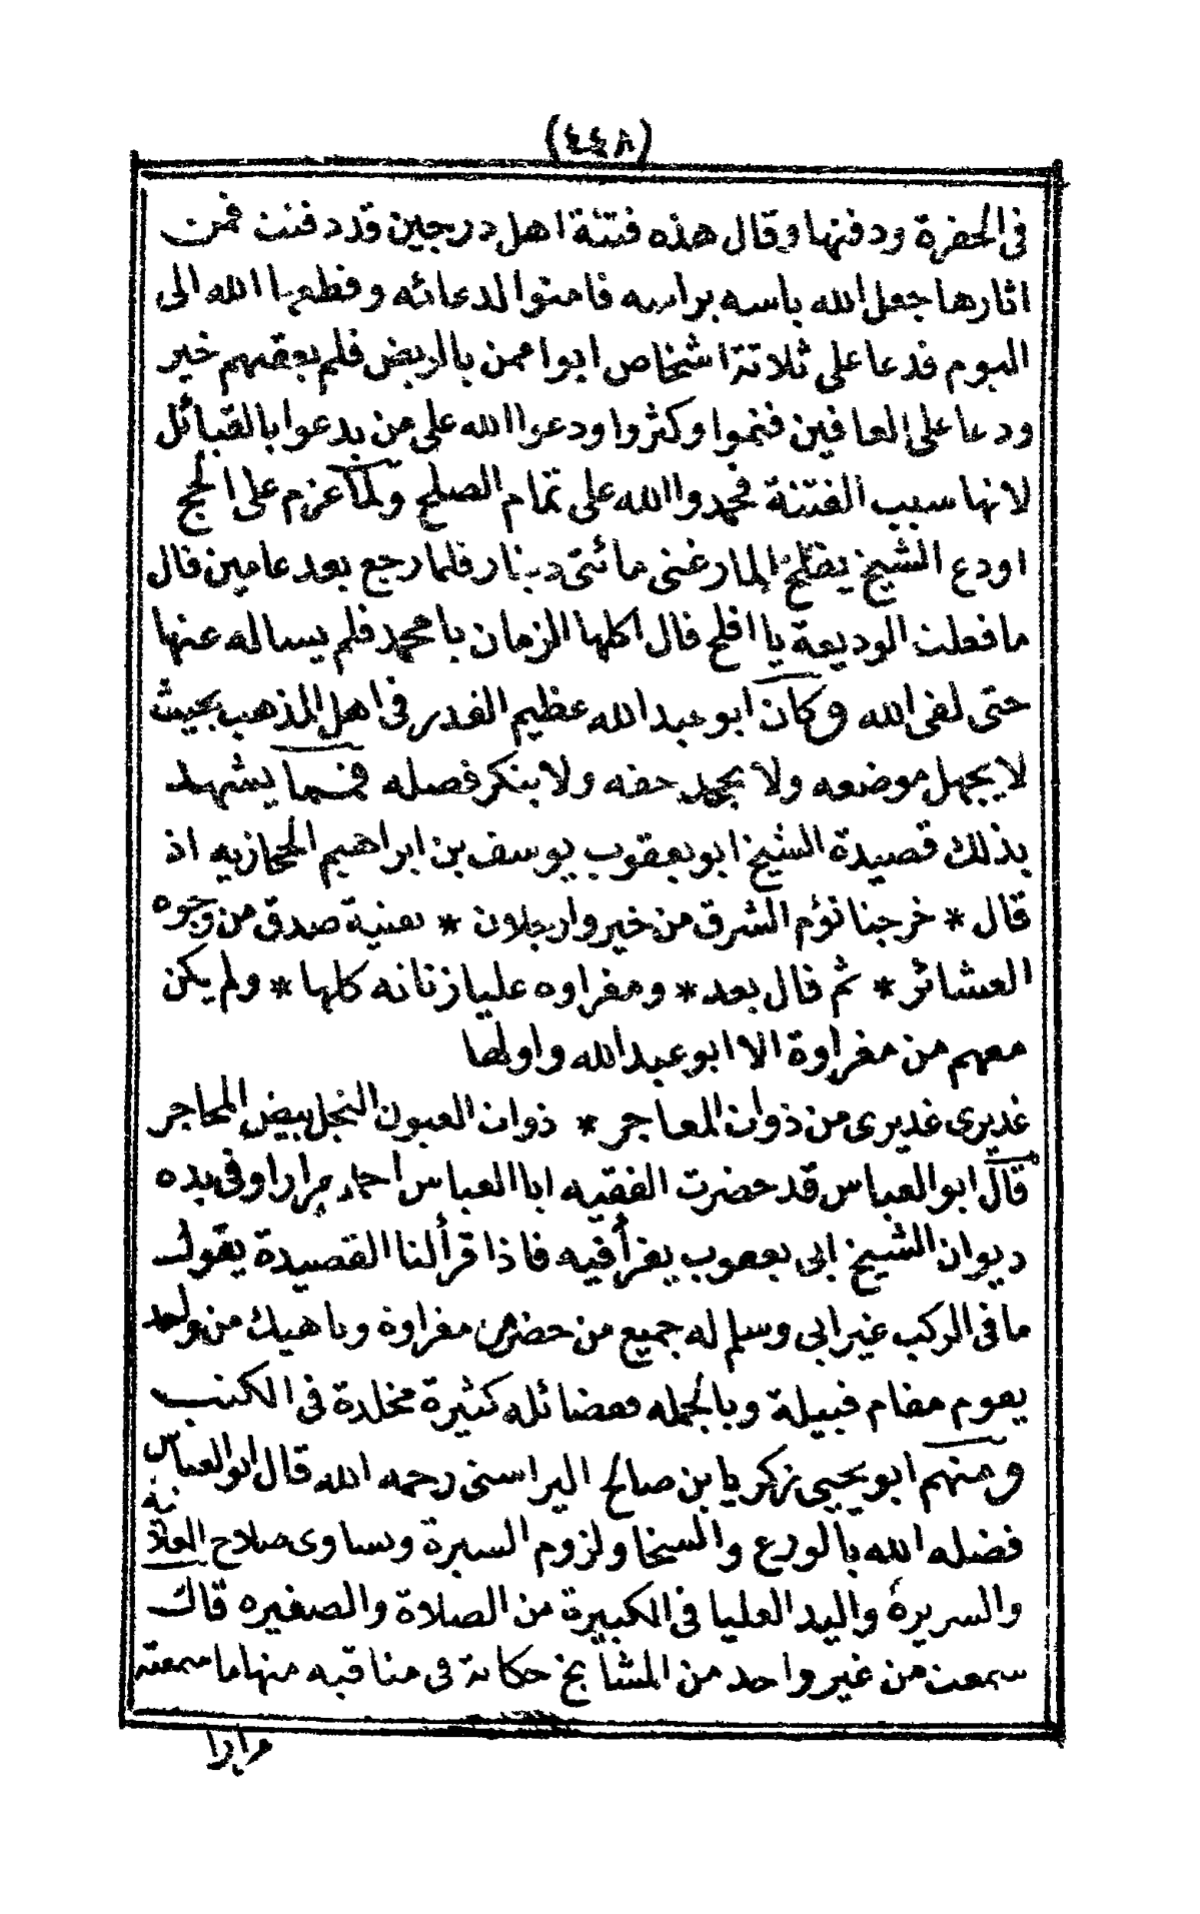 (٤٤٨)
فى الحفرة ودفنها وقال هذه فتنة اهل درجين قد دفنت فمن
اثارها جعل الله باسه براسه فامنوا لدعائه وقطعها الله الى
اليوم فدعا على ثلاثة اشخاص ابوا ممن بالربض فلم يعقبهم خير
ودعا على العافين فنموا وكثروا ودعوا الله على من يدعوا بالقبائل
لانها سبب الفتنة فحمدوا الله على تمام الصلح ولما عزم على الحج
اودع الشيخ يفلح المارغنى مائتى دينار فلما رجع بعد عامين قال
ما فعلت الوديعة يا افلح قال اكلها الزمان يا محمد فلم يساله عنها
حتى لقى الله وكان ابو عبد الله عظيم القدر فى اهل المذهب بحيث
لا يجهل موضعه ولا يجحد حقه ولا ينكر فضله فمما يشهد
بذلك قصيدة الشيخ ابو يعقوب يوسف بن ابراهيم الحجازيه اذ
قال * خرجنا نؤم الشرق من خير وارجلان * بفتية صدق من وجوه
العشائر * ثم قال بعد * ومغراوه عليا زناته كلها * ولم يكن
معهم من مغراوة الا ابو عبد الله واولها
غديرى غديرى من ذوات المعاجر * ذوات العيون النجل بيض المحاجر
قال ابو العباس قد حضرت الفقيه ابا العباس احمد مرارا وفى يده
ديوان الشيخ ابى يعقوب يقرأ فيه فاذا قرألنا القصيدة يقول
ما فى الركب غير ابى وسلم له جميع من حضر من مغراوة وناهيك من واحد
يقوم مقام قبيلة وبالجمله ففضائله كثيرة مخلدة فى الكتب
ومنهم ابو يحيى زكريا بن صالح اليراسنى رحمه الله قال ابو العباس
فضله الله بالورع والسخا ولزوم السيرة وتساوى صلاح العلانية
والسريرة واليد العليا فى الكبيرة من الصلاة والصغيره قال
سمعت من غير واحد من المشايخ حكاية فى مناقبه منها ما سمعته
مرارا